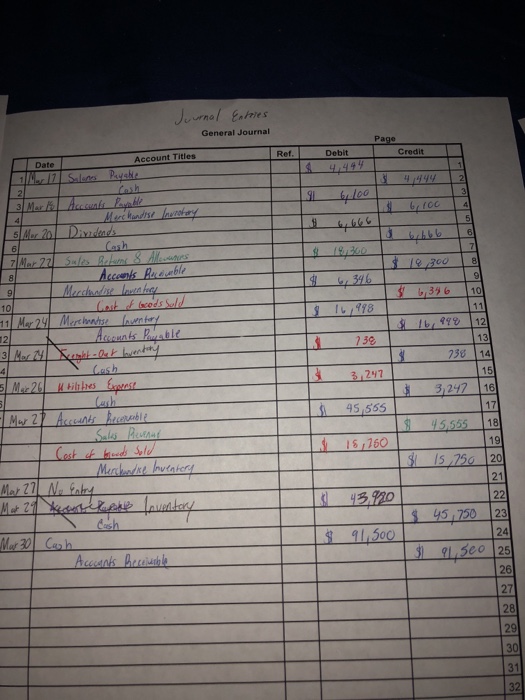 Journal Entries
General Journal
Page
Date Account Titles Ref. Debit Credit
1 Mar 17 Salaries Payable $ 4,444 1
2 Cash $ 4,444 2
3 Mar Accounts Payable $ 6,100 3
4 Merchandise Inventory $ 6,100 4
5 Mar 20 Dividends $ 6,666 5
6 Cash $ 6,666 6
7 Mar 22 Sales Returns & Allowances $ 18,300 7
8 Accounts Receivable $ 18,300 8
9 Merchandise Inventory $ 6,396 9
10 Cost of Goods Sold $ 6,396 10
11 Mar 24 Merchandise Inventory $ 16,998 11
12 Accounts Payable $ 16,998 12
3 Mar 24 Freight-Out Inventory $ 738 13
4 Cash $ 738 14
5 Mar 26 Utilities Expense $ 3,247 15
Cash $ 3,247 16
Mar 27 Accounts Receivable $ 45,555 17
Sales Revenue $ 45,555 18
Cost of Goods Sold $ 15,750 19
Merchandise Inventory $ 15,750 20
Mar 27 No Entry 21
Mar 29 Inventory $ 43,920 22
Cash $ 45,750 23
Mar 30 Cash $ 91,500 24
Accounts Receivable $ 91,500 25
26
27
28
29
30
31
32